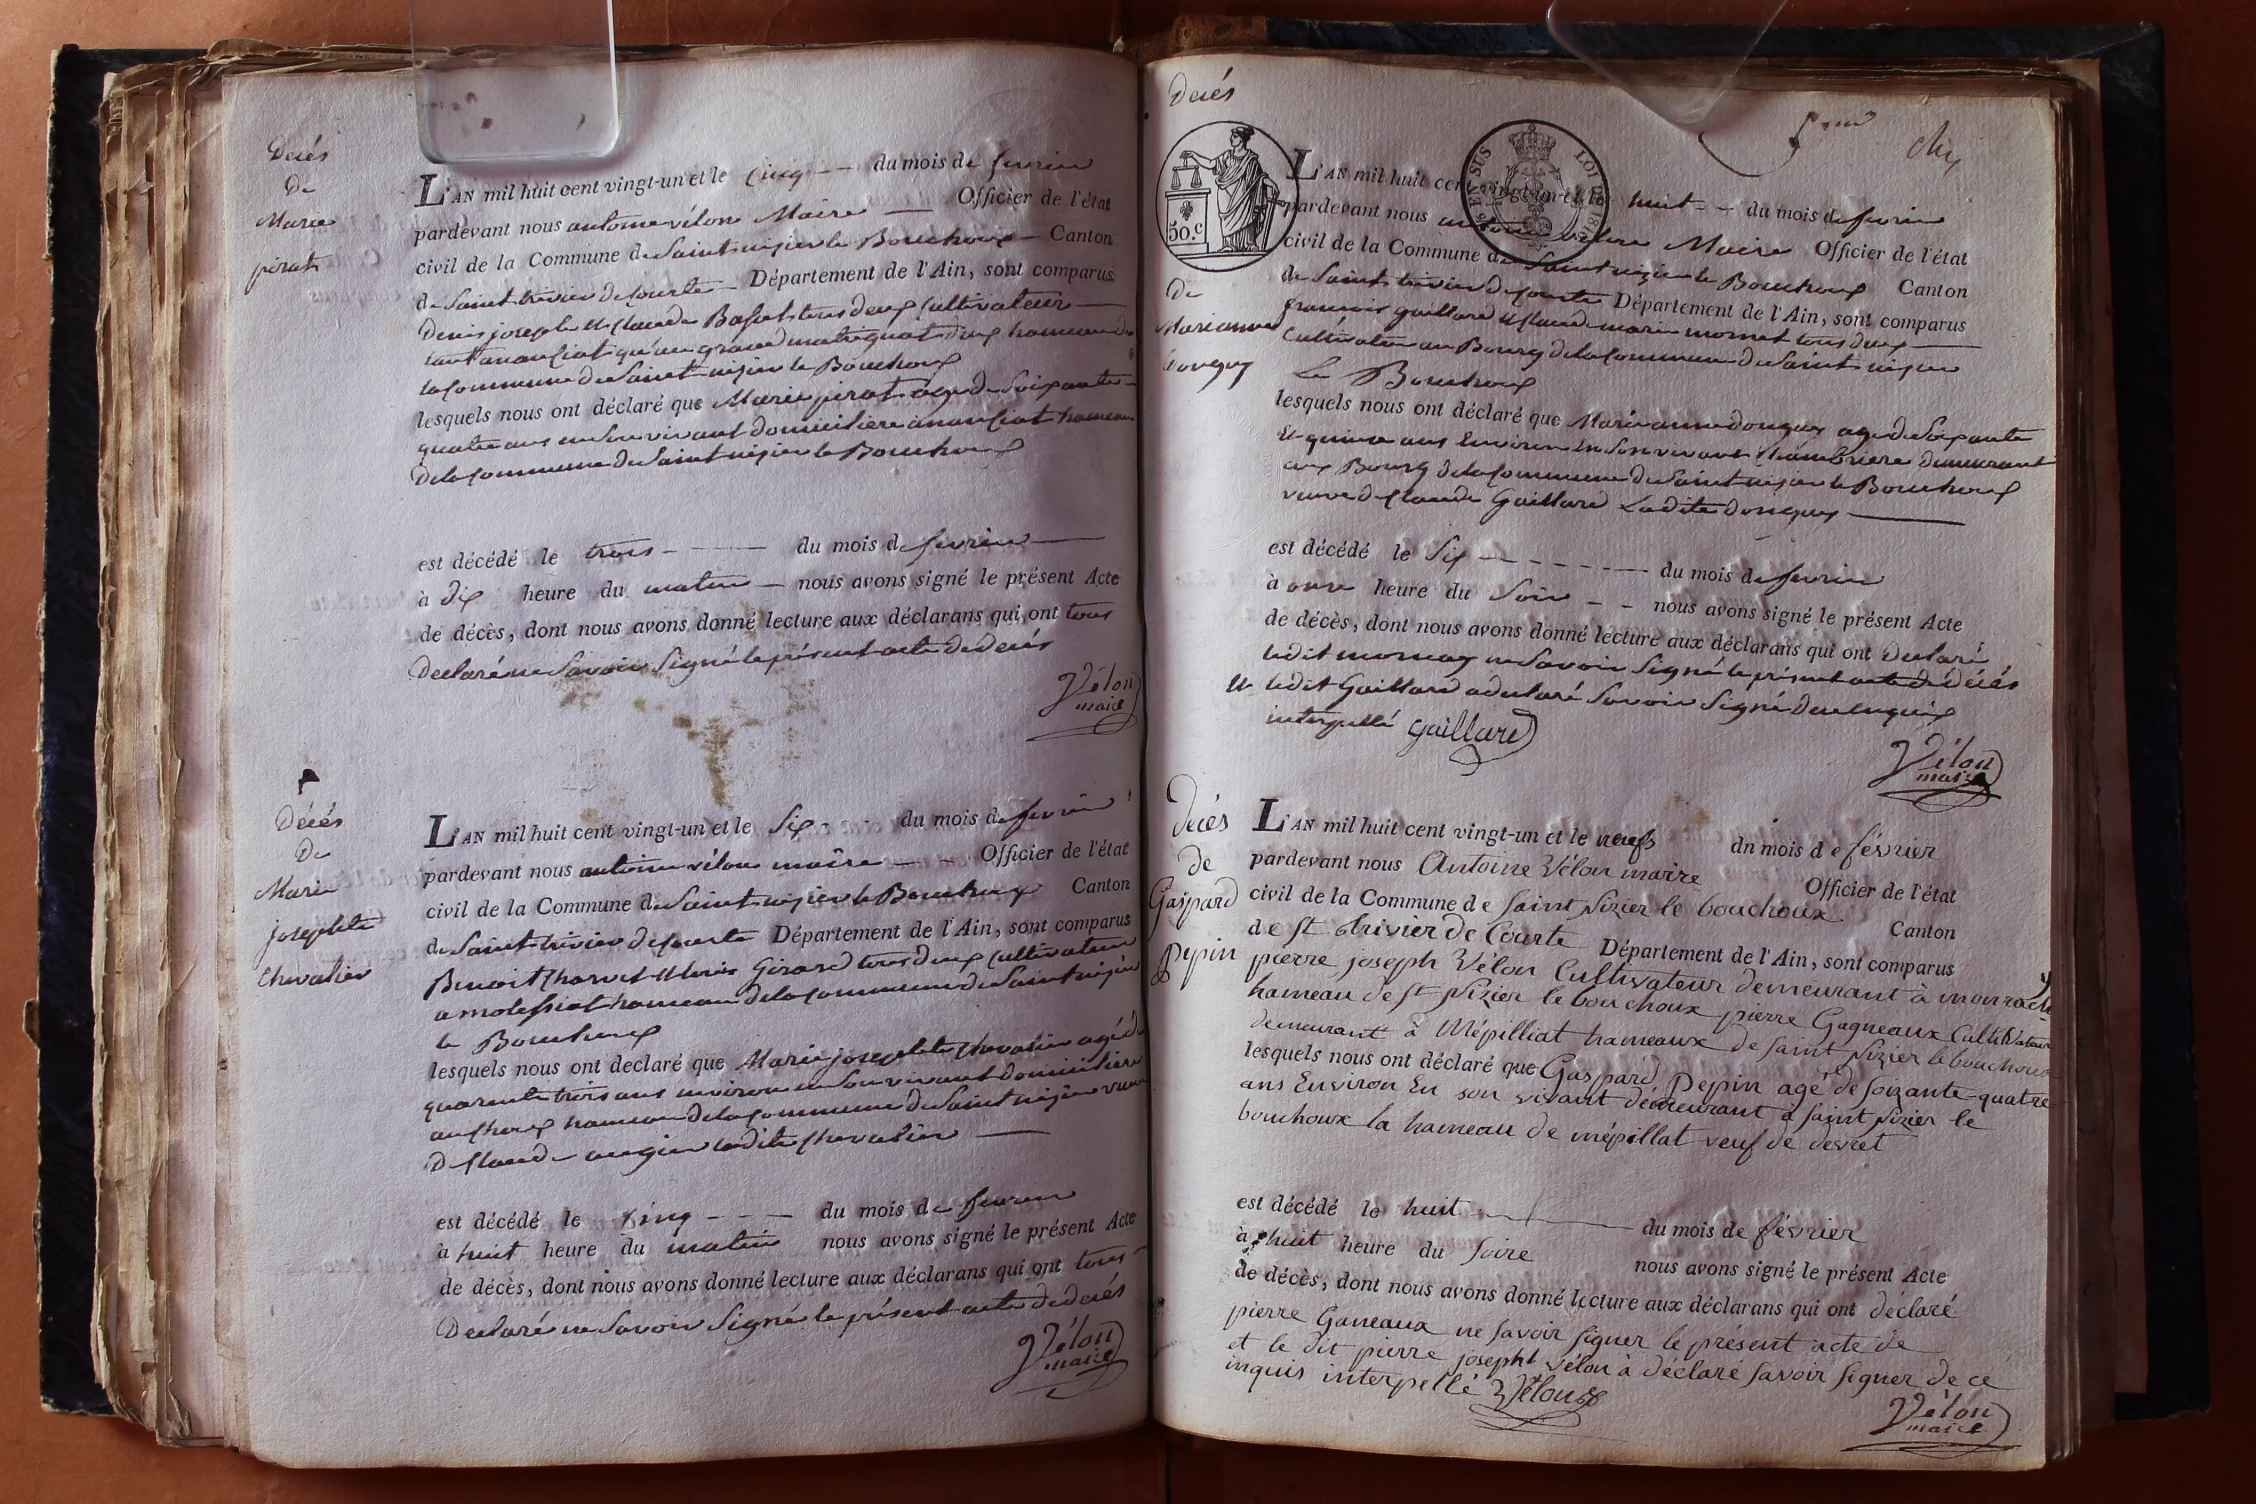 Décés
De
Marie
pirat
L'AN mil huit cent vingt-un et le cinq du mois de fevrier
pardevant nous antoine vélon Maire Officier de l'état
civil de la Commune de Saint nizier le Bouchoux Canton
de Saint trivier de Courte Département de l'Ain, sont comparus
Denis joseph et Claude tous deux Cultivateur
hameau de
la Commune de Saint nizier le Bouchoux
lesquels nous ont déclaré que Marie pirat agé de Soixante
quatre ans en Son vivant Domicilière hameau
De la Commune de Saint nizier le Bouchoux
est décédé le trois du mois de fevrier
à Dix heure du matin nous avons signé le présent Acte
de décès, dont nous avons donné lecture aux déclarans qui ont tous
Declaré ne Savoir Signé le présent acte de décés
Vélon
maire
Décés
De
Marie
josephte
Chevalier
L'AN mil huit cent vingt-un et le Six du mois de fevrier
pardevant nous antoine vélon maire Officier de l'état
civil de la Commune de Saint nizier le Bouchoux Canton
de Saint trivier de Courte Département de l'Ain, sont comparus
Benoit Charvet et Girard tous deux Cultivateur
a hameau de la Commune de Saint nizier
le Bouchoux
lesquels nous ont declaré que Marie josephte Chevalier agé de
quarente trois ans environ en Son vivant Domicilière
au hameau de la Commune de Saint nizier veuve
De Claude ladite Chevalier
est décédé le Cinq du mois de fevrier
à huit heure du matin nous avons signé le présent Acte
de décès, dont nous avons donné lecture aux déclarans qui ont tous
Declaré ne Savoir Signé le présent acte de décés
Vélon
maire
Décés
50.c
EN SUS
LOI DE 1816
De
Marianne
Dongey
L'AN mil huit cent vingt-un et le huit du mois de fevrier
pardevant nous antoine vélon Maire Officier de l'état
civil de la Commune de Saint nizier le Bouchoux Canton
de Saint trivier de Courte Département de l'Ain, sont comparus
françois gaillard et Claude marie tous deux
Cultivateur au Bourg de la Commune de Saint nizier
le Bouchoux
lesquels nous ont déclaré que Marianne agé de Soixante
et quinze ans Environ En Son vivant Chambriere demeurant
aux Bourg de la Commune de Saint nizier le Bouchoux
veuve de Claude Gaillard Ladite
est décédé le Six du mois de fevrier
à onze heure du Soir nous avons signé le présent Acte
de décès, dont nous avons donné lecture aux déclarans qui ont Declaré
ledit ne Savoir Signé le présent acte de décés
et ledit Gaillard a declaré Savoir Signé De ce enquis
interpellé gaillard
Vélon
maire
Décés
de
Gaspard
Pepin
L'AN mil huit cent vingt-un et le neufs du mois de février
pardevant nous Antoine Vélon maire Officier de l'état
civil de la Commune de saint Nizier le bouchoux Canton
de St trivier de Courte Département de l'Ain, sont comparus
pierre joseph Vélon Cultivateur demeurant à
hameau de St Nizier le bouchoux pierre Gagneaux Cultivateur
demeurant à Mépilliat hameaux de saint Nizier le bouchoux
lesquels nous ont déclaré que Gaspard Pepin agé de soizante quatre
ans Environ En son vivant demeurant a saint Nizier le
bouchoux la hameau de mépillat veuf de
est décédé le huit du mois de février
à huit heure du soire nous avons signé le présent Acte
de décès, dont nous avons donné lecture aux déclarans qui ont déclaré
pierre Ganeaux ne savoir signer le présent acte de
et le dit pierre joseph vélon à déclaré savoir signer de ce
inquis interpellé Vélon
Vélon
maire